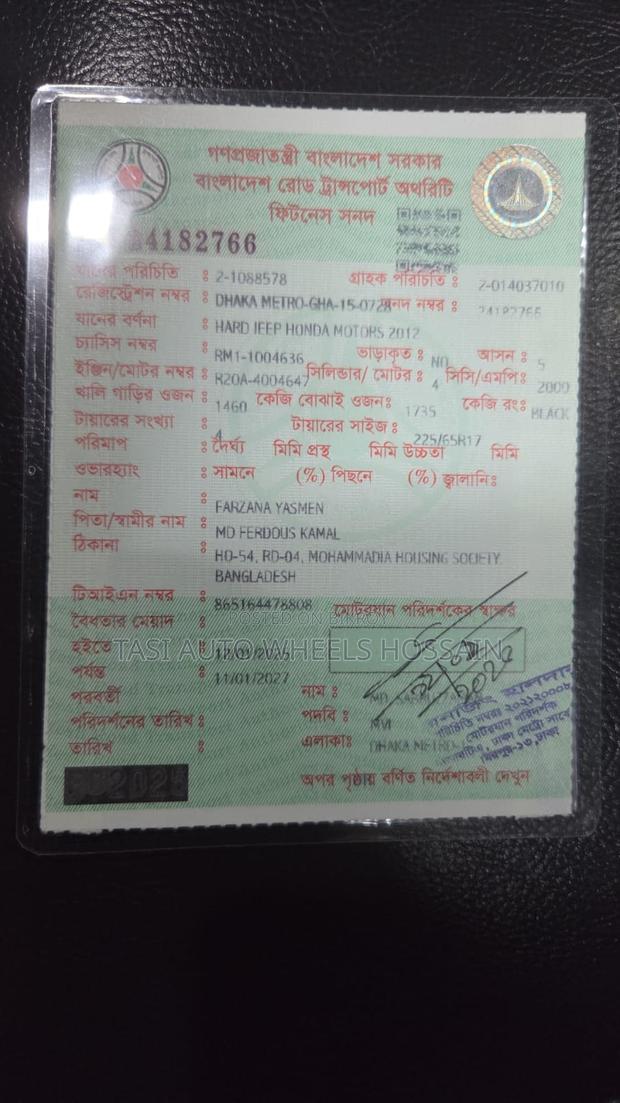 গণপ্রজাতন্ত্রী বাংলাদেশ সরকার
বাংলাদেশ রোড ট্রান্সপোর্ট অথরিটি
ফিটনেস সনদ
4182766
যানের পরিচিতি : 2-1088578 গ্রাহক পরিচিতি : 2-014037010
রেজিস্ট্রেশন নম্বর : DHAKA METRO-GHA-15-0728 সনদ নম্বর :
যানের বর্ণনা : HARD JEEP HONDA MOTORS 2012
চ্যাসিস নম্বর : RM1-1004636 ভাড়াকৃত : NO আসন : 5
ইঞ্জিন/মোটর নম্বর : R20A-4004647 সিলিন্ডার/ মোটর : 4 সিসি/এমপি: 2000
খালি গাড়ির ওজন : 1460 কেজি বোঝাই ওজন: 1735 কেজি রং: BLACK
টায়ারের সংখ্যা : 4 টায়ারের সাইজ : 225/65R17
পরিমাপ : দৈর্ঘ্য মিমি প্রস্থ মিমি উচ্চতা মিমি
ওভারহ্যাং : সামনে (%) পিছনে (%) জ্বালানি:
নাম : FARZANA YASMEN
পিতা/স্বামীর নাম : MD FERDOUS KAMAL
ঠিকানা : HO-54, RD-04, MOHAMMADIA HOUSING SOCIETY.
BANGLADESH
টিআইএন নম্বর : 865164478808 মোটরযান পরিদর্শকের স্বাক্ষর
বৈধতার মেয়াদ :
হইতে : 12/01/2026
TASI AUTO WHEELS HOSSAIN
পর্যন্ত : 11/01/2027
পরবর্তী নাম : MD
পরিদর্শনের তারিখ : পদবি : MVI
তারিখ : এলাকা: DHAKA METRO
মোটরযান পরিদর্শক
মিরপুর-১৩, ঢাকা
অপর পৃষ্ঠায় বর্ণিত নির্দেশাবলী দেখুন